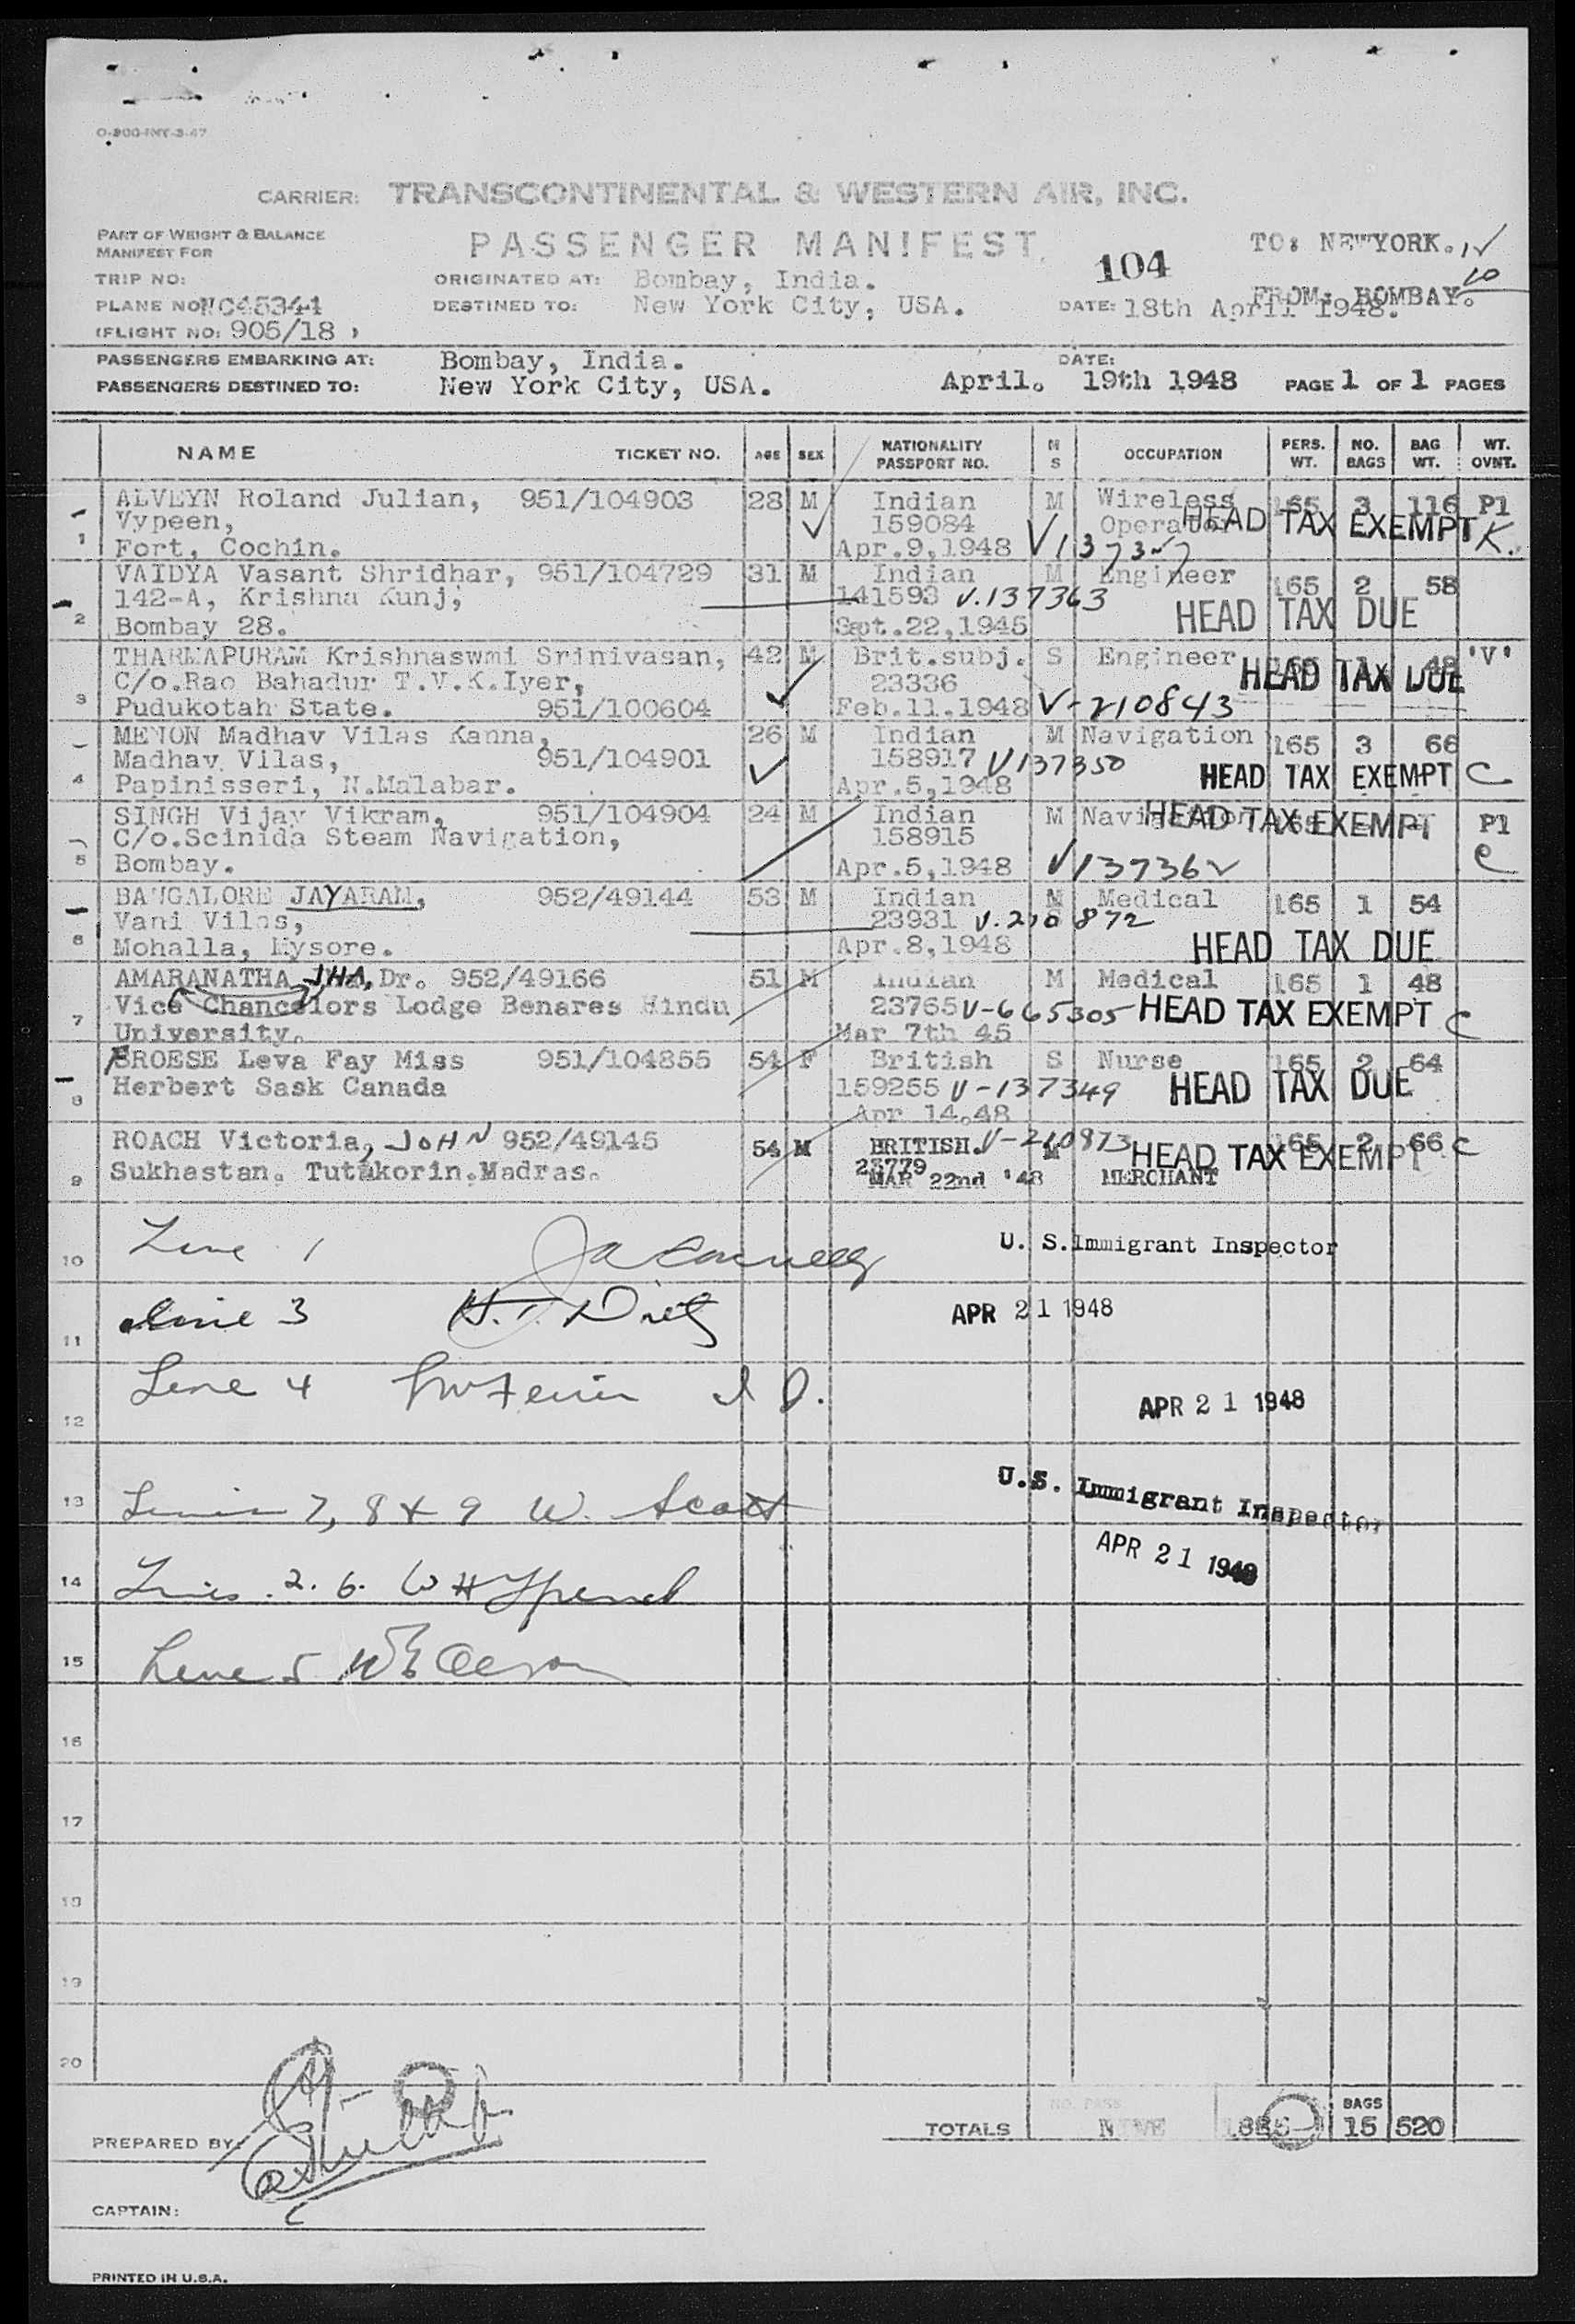 O-200-INT-3-47
CARRIER: TRANSCONTINENTAL & WESTERN AIR, INC.
PART OF WEIGHT & BALANCE
MANIFEST FOR
PASSENGER MANIFEST
104
TO: NEWYORK.
10
TRIP NO:
ORIGINATED AT: Bombay, India.
FROM: BOMBAY.
PLANE NO: NC45344
DESTINED TO: New York City, USA.
DATE: 18th April 1948.
(FLIGHT NO: 905/18 )
PASSENGERS EMBARKING AT: Bombay, India.
DATE:
PASSENGERS DESTINED TO: New York City, USA.
April. 19th 1948 PAGE 1 OF 1 PAGES
NAME TICKET NO. AGE SEX NATIONALITY PASSPORT NO. M S OCCUPATION PERS. WT. NO. BAGS BAG WT. WT. OVNT.
1 ALVEYN Roland Julian, 951/104903 28 M Indian M Wireless 165 3 116 P1
Vypeen, 159084 Operator HEAD TAX EXEMPT K.
Fort, Cochin. Apr.9,1948
2 VAIDYA Vasant Shridhar, 951/104729 31 M Indian M Engineer 165 2 58
142-A, Krishna Kunj, 141593 V.137363 HEAD TAX DUE
Bombay 28. Sept.22,1945
3 THARMAPURAM Krishnaswmi Srinivasan, 42 M Brit.subj. S Engineer 165 1 48 'V'
C/o.Rao Bahadur T.V.K.Iyer, 23336 HEAD TAX DUE
Pudukotah State. 951/100604 Feb.11.1948 V-210843
4 MENON Madhav Vilas Kanna, 26 M Indian M Navigation 165 3 66
Madhav Vilas, 951/104901 158917 V137350 HEAD TAX EXEMPT C
Papinisseri, N.Malabar. Apr.5,1948
5 SINGH Vijay Vikram, 951/104904 24 M Indian M Navigation 165 HEAD TAX EXEMPT P1
C/o.Scinida Steam Navigation, 158915 C
Bombay. Apr.5,1948 V137362
6 BANGALORE JAYARAM, 952/49144 53 M Indian M Medical 165 1 54
Vani Vilas, 23931 V.210872
Mohalla, Mysore. Apr.8,1948 HEAD TAX DUE
7 AMARANATHA JHA, Dr. 952/49166 51 M Indian M Medical 165 1 48
Vice Chancelors Lodge Benares Hindu 23765 V-665305 HEAD TAX EXEMPT C
University. Mar 7th 45
8 BROESE Leva Fay Miss 951/104855 54 F British S Nurse 165 2 64
Herbert Sask Canada 159255 V-137349 HEAD TAX DUE
Apr 14.48
9 ROACH Victoria, JOHN 952/49145 54 M BRITISH. V-210873 M 165 2 66 C
Sukhastan. Tutakorin.Madras. 23779 MERCHANT HEAD TAX EXEMPT
MAR 22nd '48
10 Line 1 U. S.Immigrant Inspector
11 Line 3 H.T. Dietz APR 21 1948
12 Line 4 APR 21 1948
13 Lines 7, 8 & 9 W. Scott U.S. Immigrant Inspector
APR 21 1948
14 Lines 2. 6.
15 Line 5
16
17
18
19
20
TOTALS NO. PASS. NINE BAGS 15 520
PREPARED BY:
CAPTAIN:
PRINTED IN U.S.A.